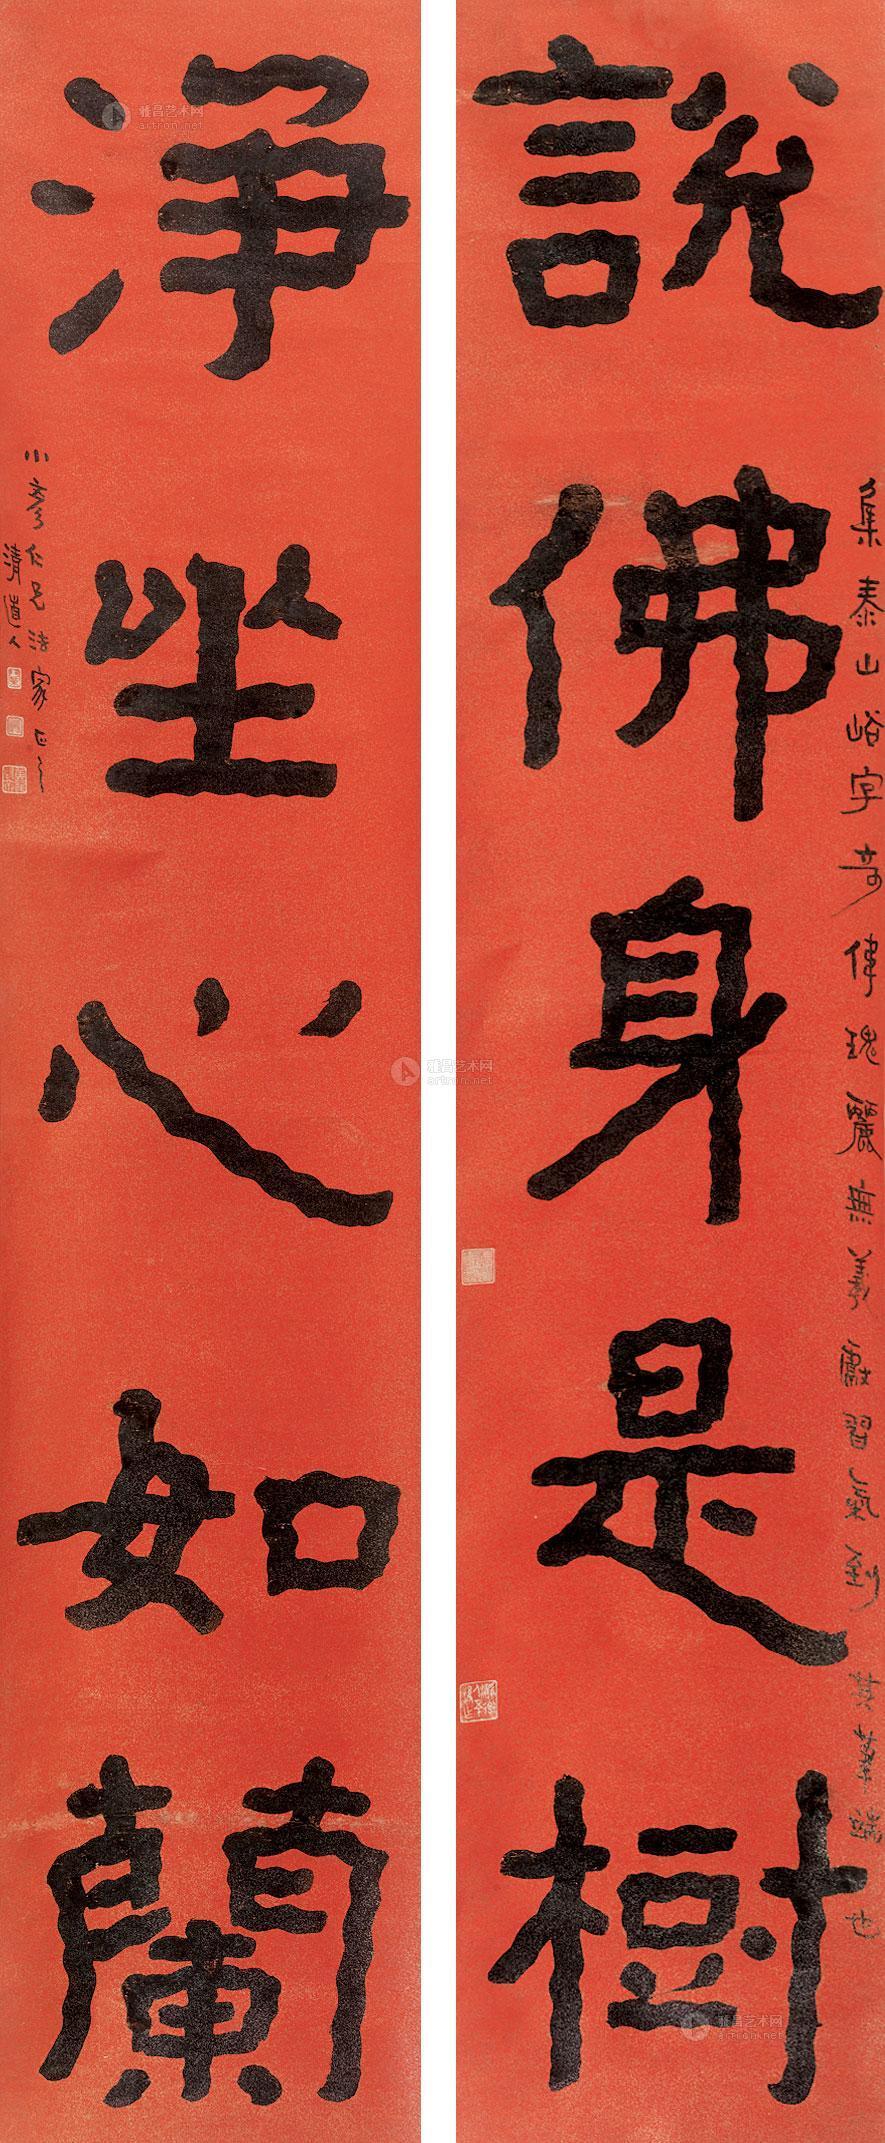 說佛身是樹
集泰山峪字奇偉瑰麗無羲獻習氣到
也
淨坐心如蘭
小彥仁兄法家正之
清道人
雅昌艺术网
artron.net
雅昌艺术网
artron.net
雅昌艺术网
artron.net